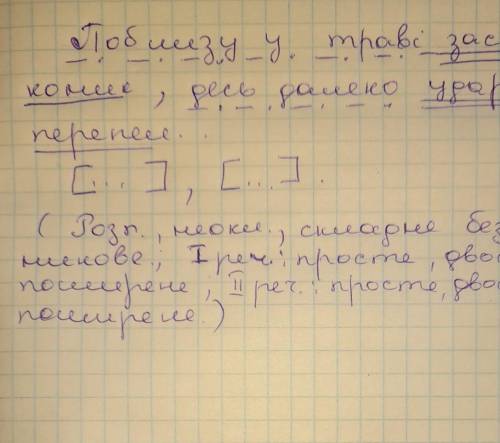 Поблизу у траві зас
коник, десь далеко удар
перепел.
[...], [...].
(Розп., неокл., складне без
никове.; I реч.: просте, двос
поширене, II реч.: просте, двос
поширене.)